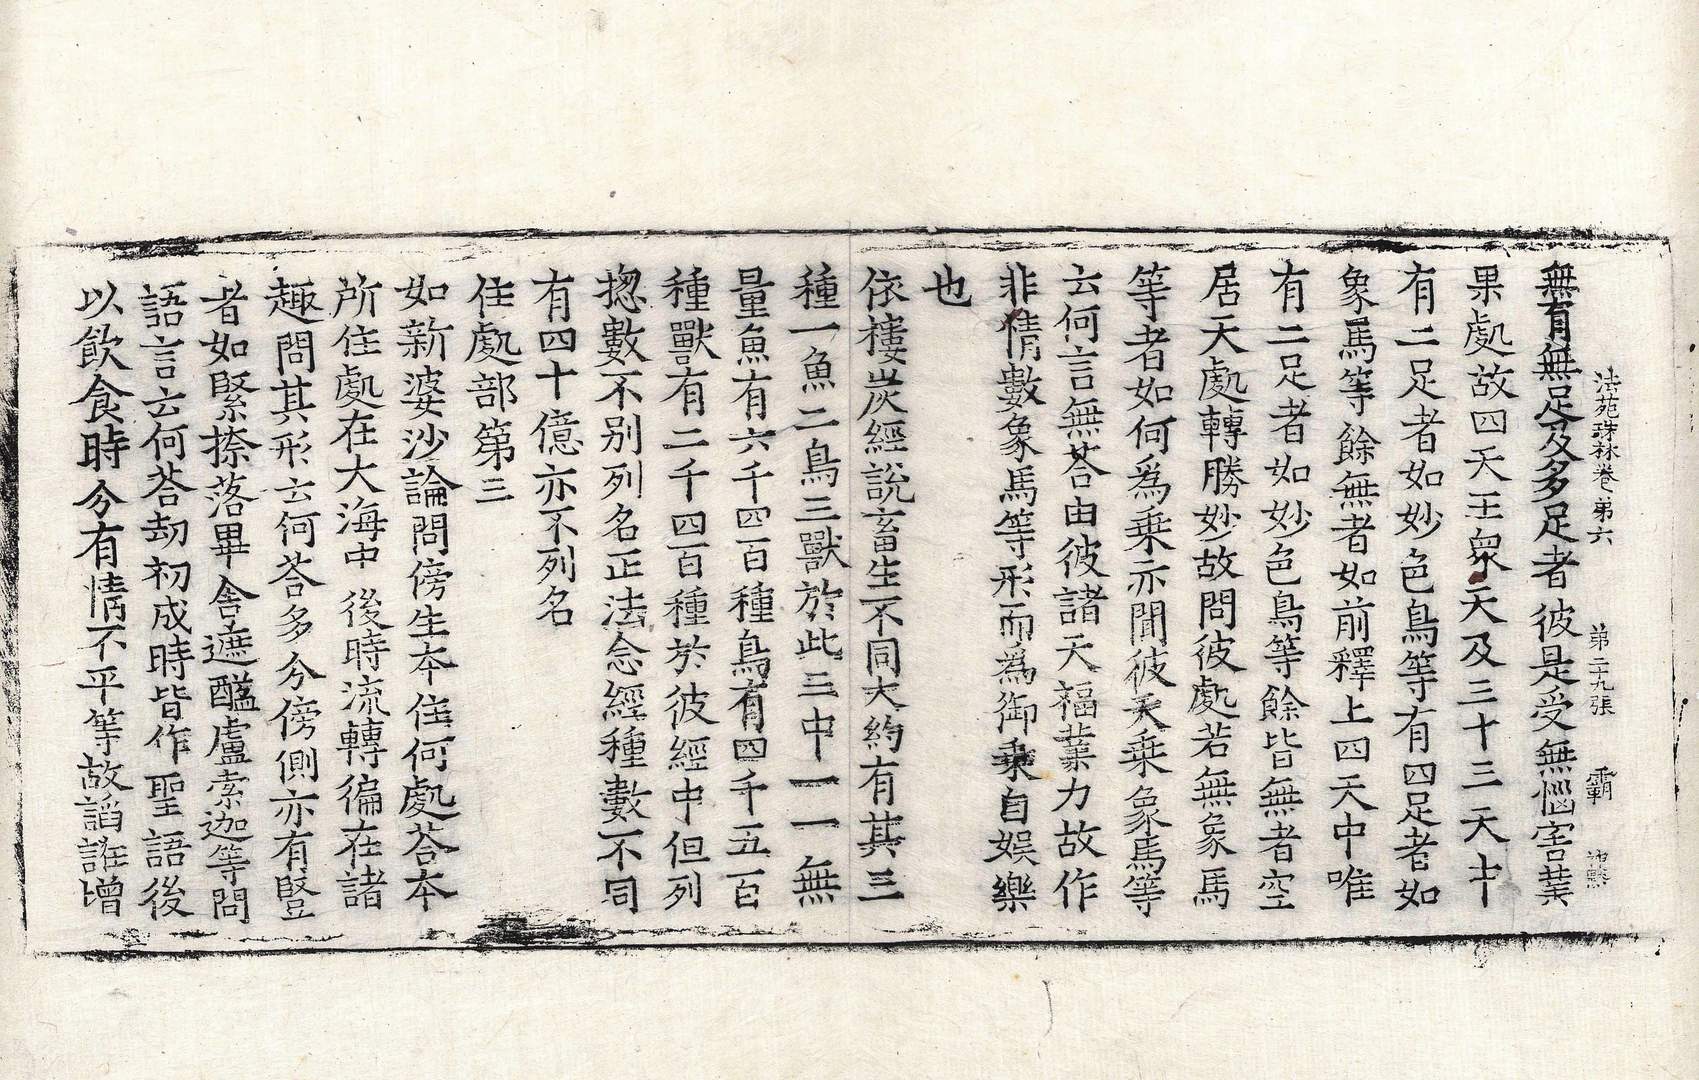 法苑珠林卷第六 第二十九張 霸
無有無足及多足者彼是受無惱害業
果處故四天王衆天及三十三天中
有二足者如妙色鳥等有四足者如
象馬等餘無者如前釋上四天中唯
有二足者如妙色鳥等餘皆無者空
居天處轉勝妙故問彼處若無象馬
等者如何爲乗亦聞彼天乗象馬等
云何言無荅由彼諸天福業力故作
非情數象馬等形而爲御乗自娛樂
也
依樓炭經說畜生不同大約有其三
種一魚二鳥三獸於此三中一一無
量魚有六千四百種鳥有四千五百
種獸有二千四百種於彼經中但列
揔數不別列名正法念經種數不同
有四十億亦不列名
住處部第三
如新婆沙論問傍生本住何處荅本
所住處在大海中後時流轉徧在諸
趣問其形云何荅多分傍側亦有竪
者如緊捺落畢舍遮醯盧索迦等問
語言云何荅劫初成時皆作聖語後
以飲食時分有情不平等故諂誑增